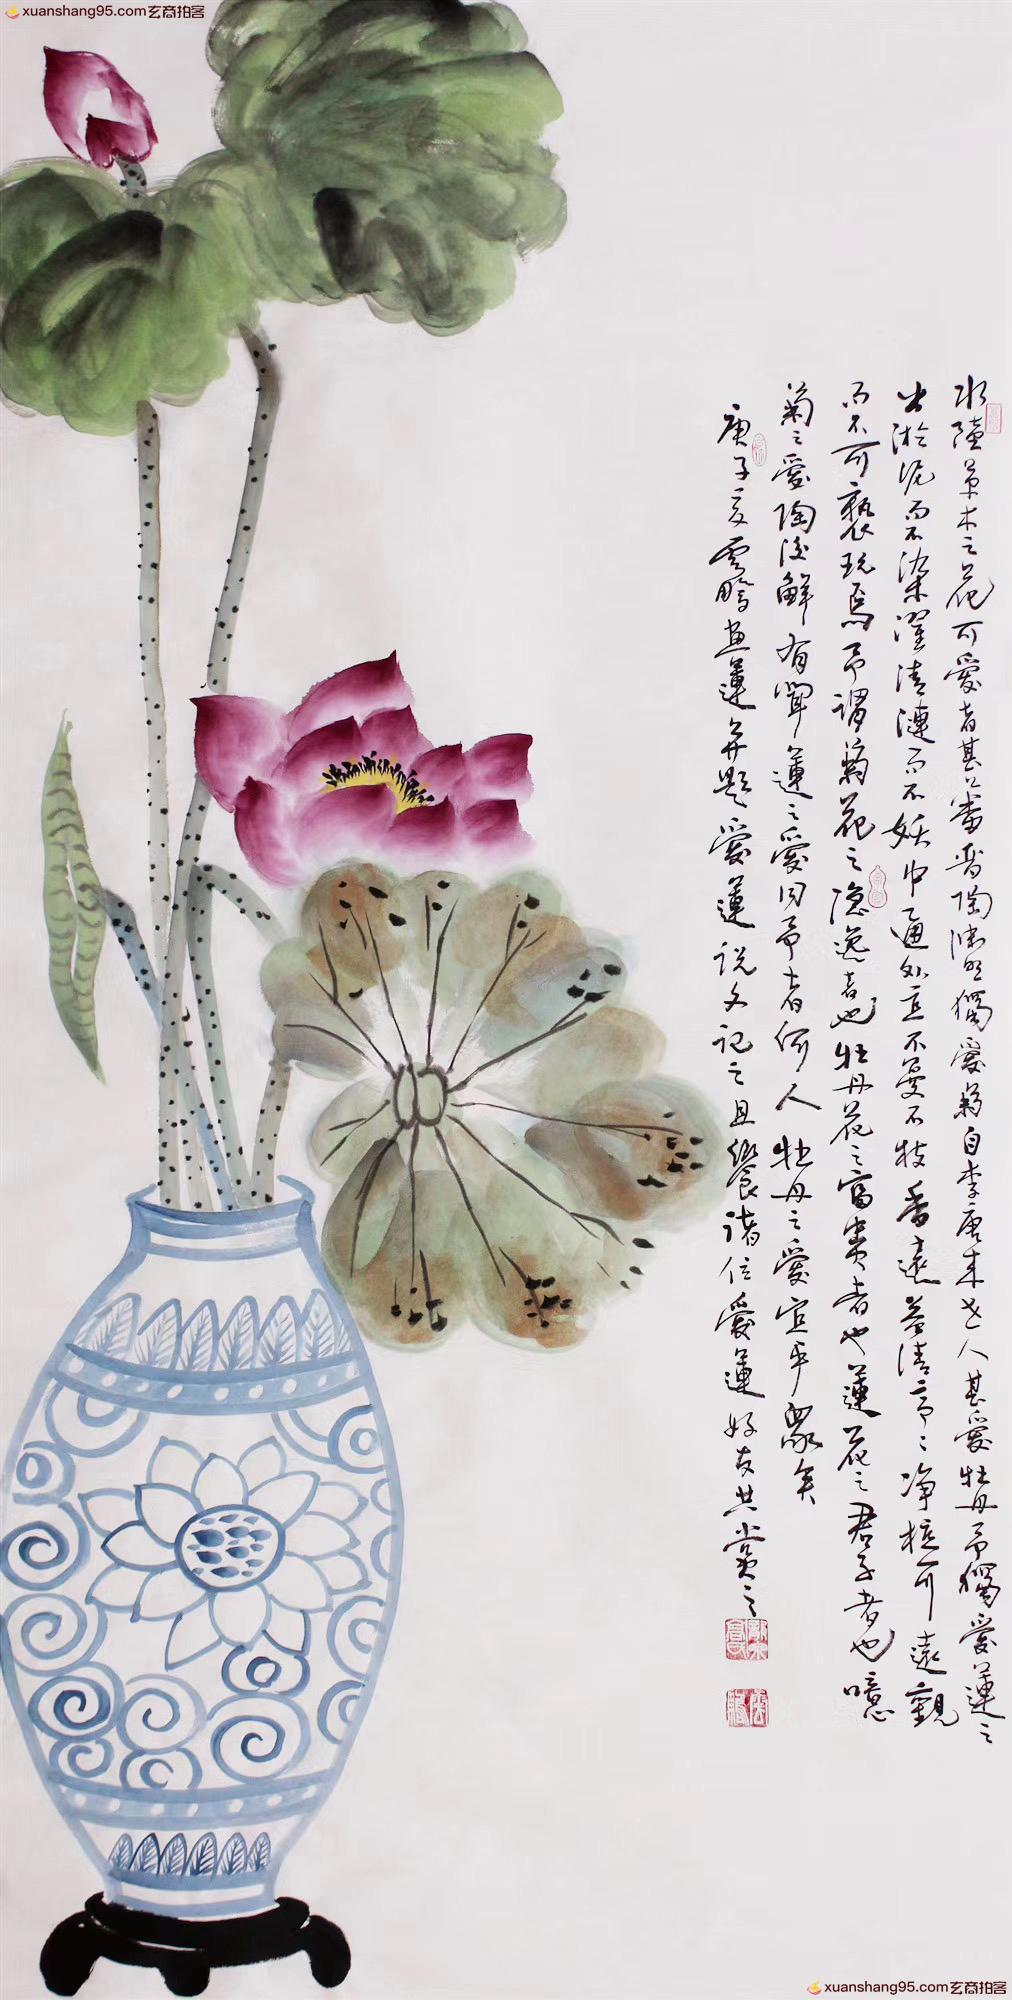 xuanshang95.com玄商拍客
水陸草木之花可愛者甚蕃晋陶淵明獨愛菊自李唐来世人甚愛牡丹予獨愛蓮之
出淤泥而不染濯清漣而不妖中通外直不蔓不枝香遠益清亭亭净植可遠觀
而不可褻玩焉予謂菊花之隐逸者也牡丹花之富貴者也蓮花之君子者也噫
菊之愛陶後鮮有聞蓮之愛同予者何人牡丹之愛宜乎眾矣
庚子夏雲鵬畫蓮并題愛蓮説文記之且饗诸位愛蓮好友共賞之
xuanshang95.com玄商拍客